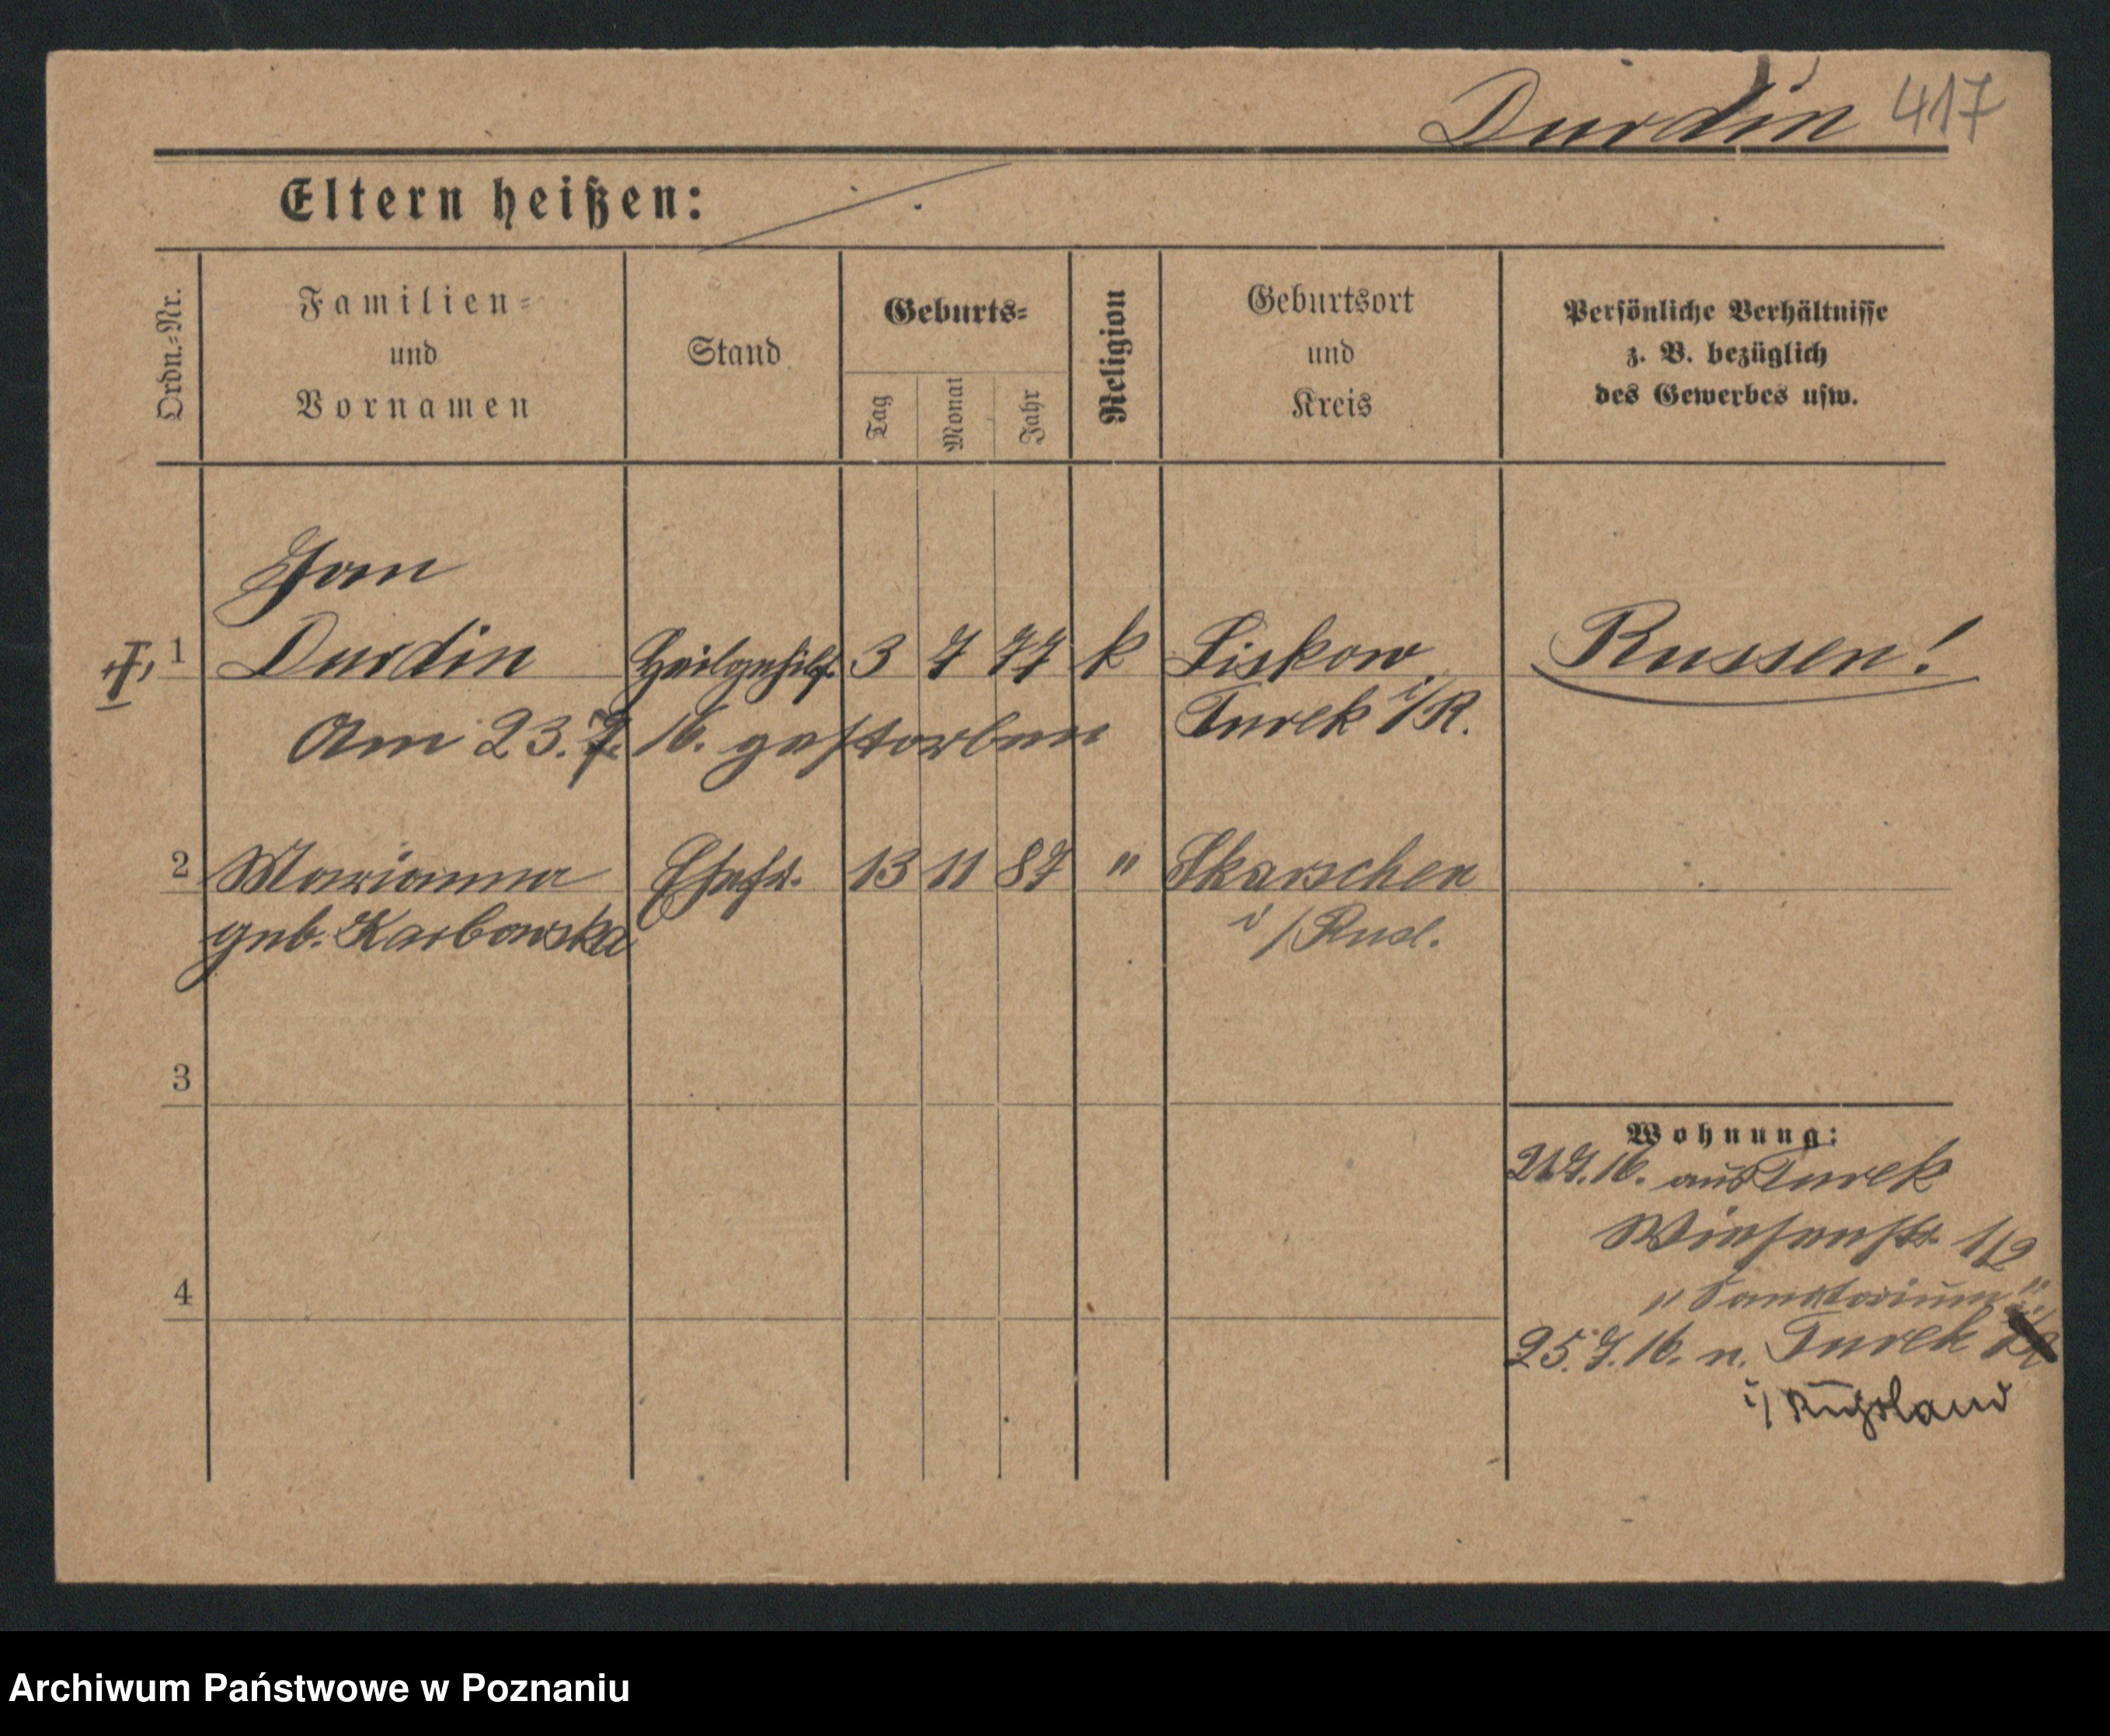 Durdin 417
Eltern heißen:
Ordn.-Nr.
Familien-
und
Vornamen
Stand
Geburts-
Tag
Monat
Jahr
Religion
Geburtsort
und
Kreis
Persönliche Verhältnisse
z. B. bezüglich
des Gewerbes usw.
Jan
1 Durdin Heilgehilf. 3 7 77 k Liskow Russen!
Turek i/R.
Am 23. 7. 16. gestorben
2 Marianna Ehefr. 13 11 87 " Skarschen
geb. Karbowska i/Rusl.
3
4
Wohnung:
21.7.16. aus Turek
Wiesenstr. 1/2
"Sanatorium"
25.7.16. n. Turek
i/ Rußland
Archiwum Państwowe w Poznaniu